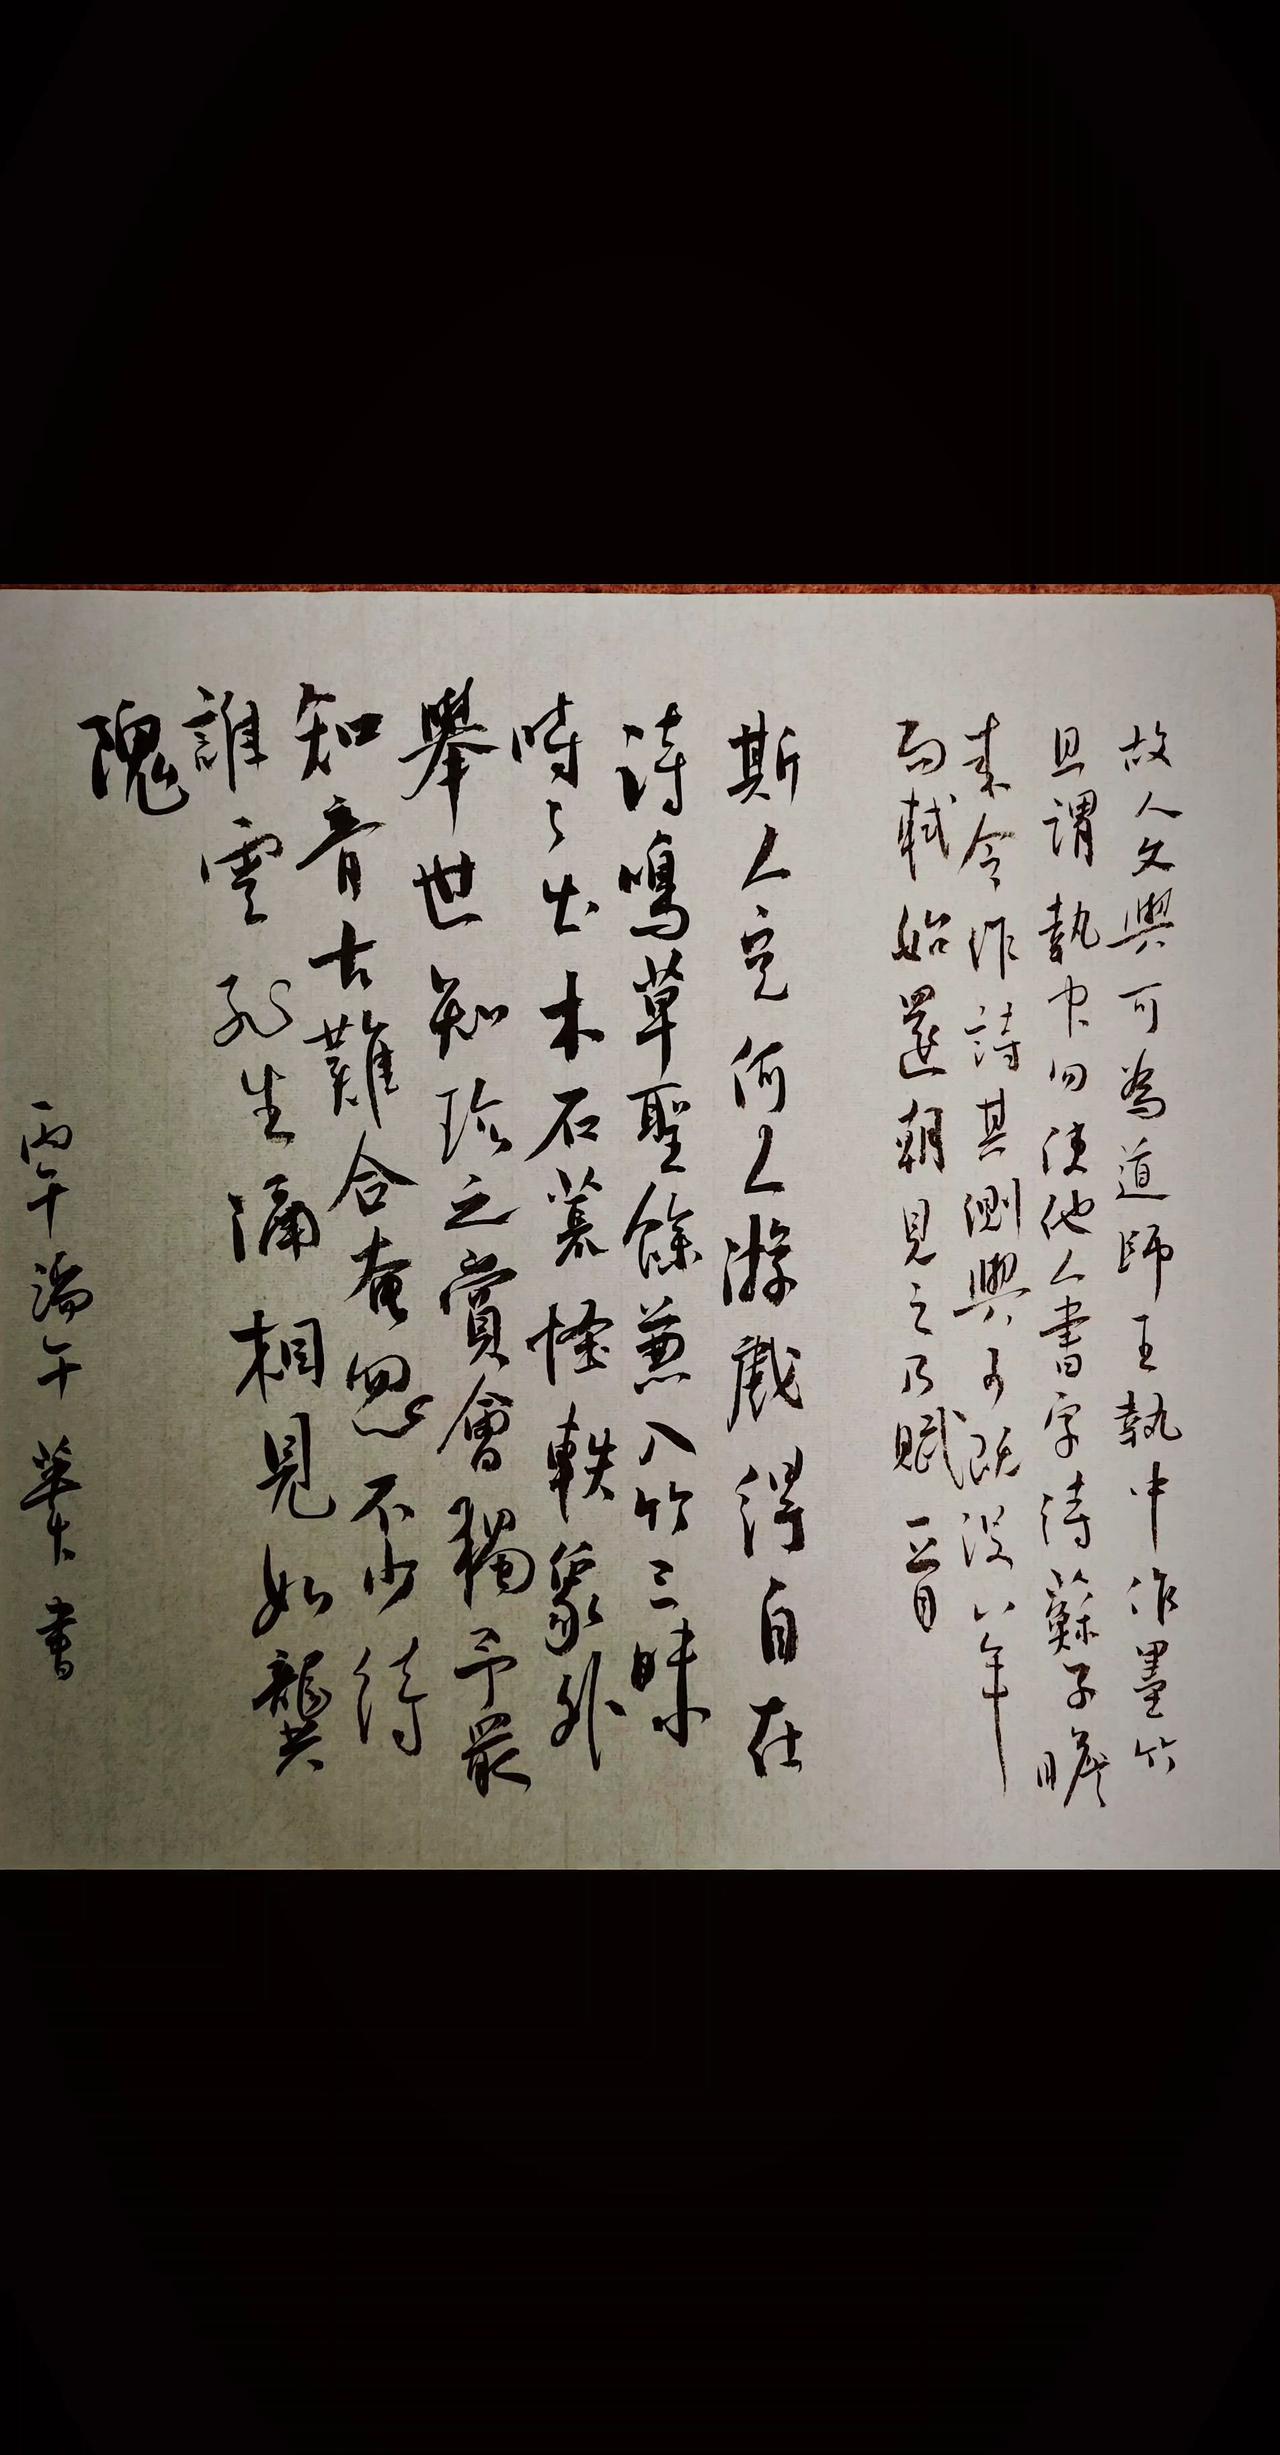 故人文與可為道師王執中作墨竹
且謂執中勿使他人書字待蘇子瞻
來令作詩其側與可既没八年
而軾始還朝見之乃賦一首
斯人定何人游戲得自在
詩鳴草聖餘兼入竹三昧
時時出木石荒怪軼象外
舉世知珍之賞會獨予最
知音古難合奄忽不少待
誰云死生隔相見如龔
隗
丙午端午 華大書